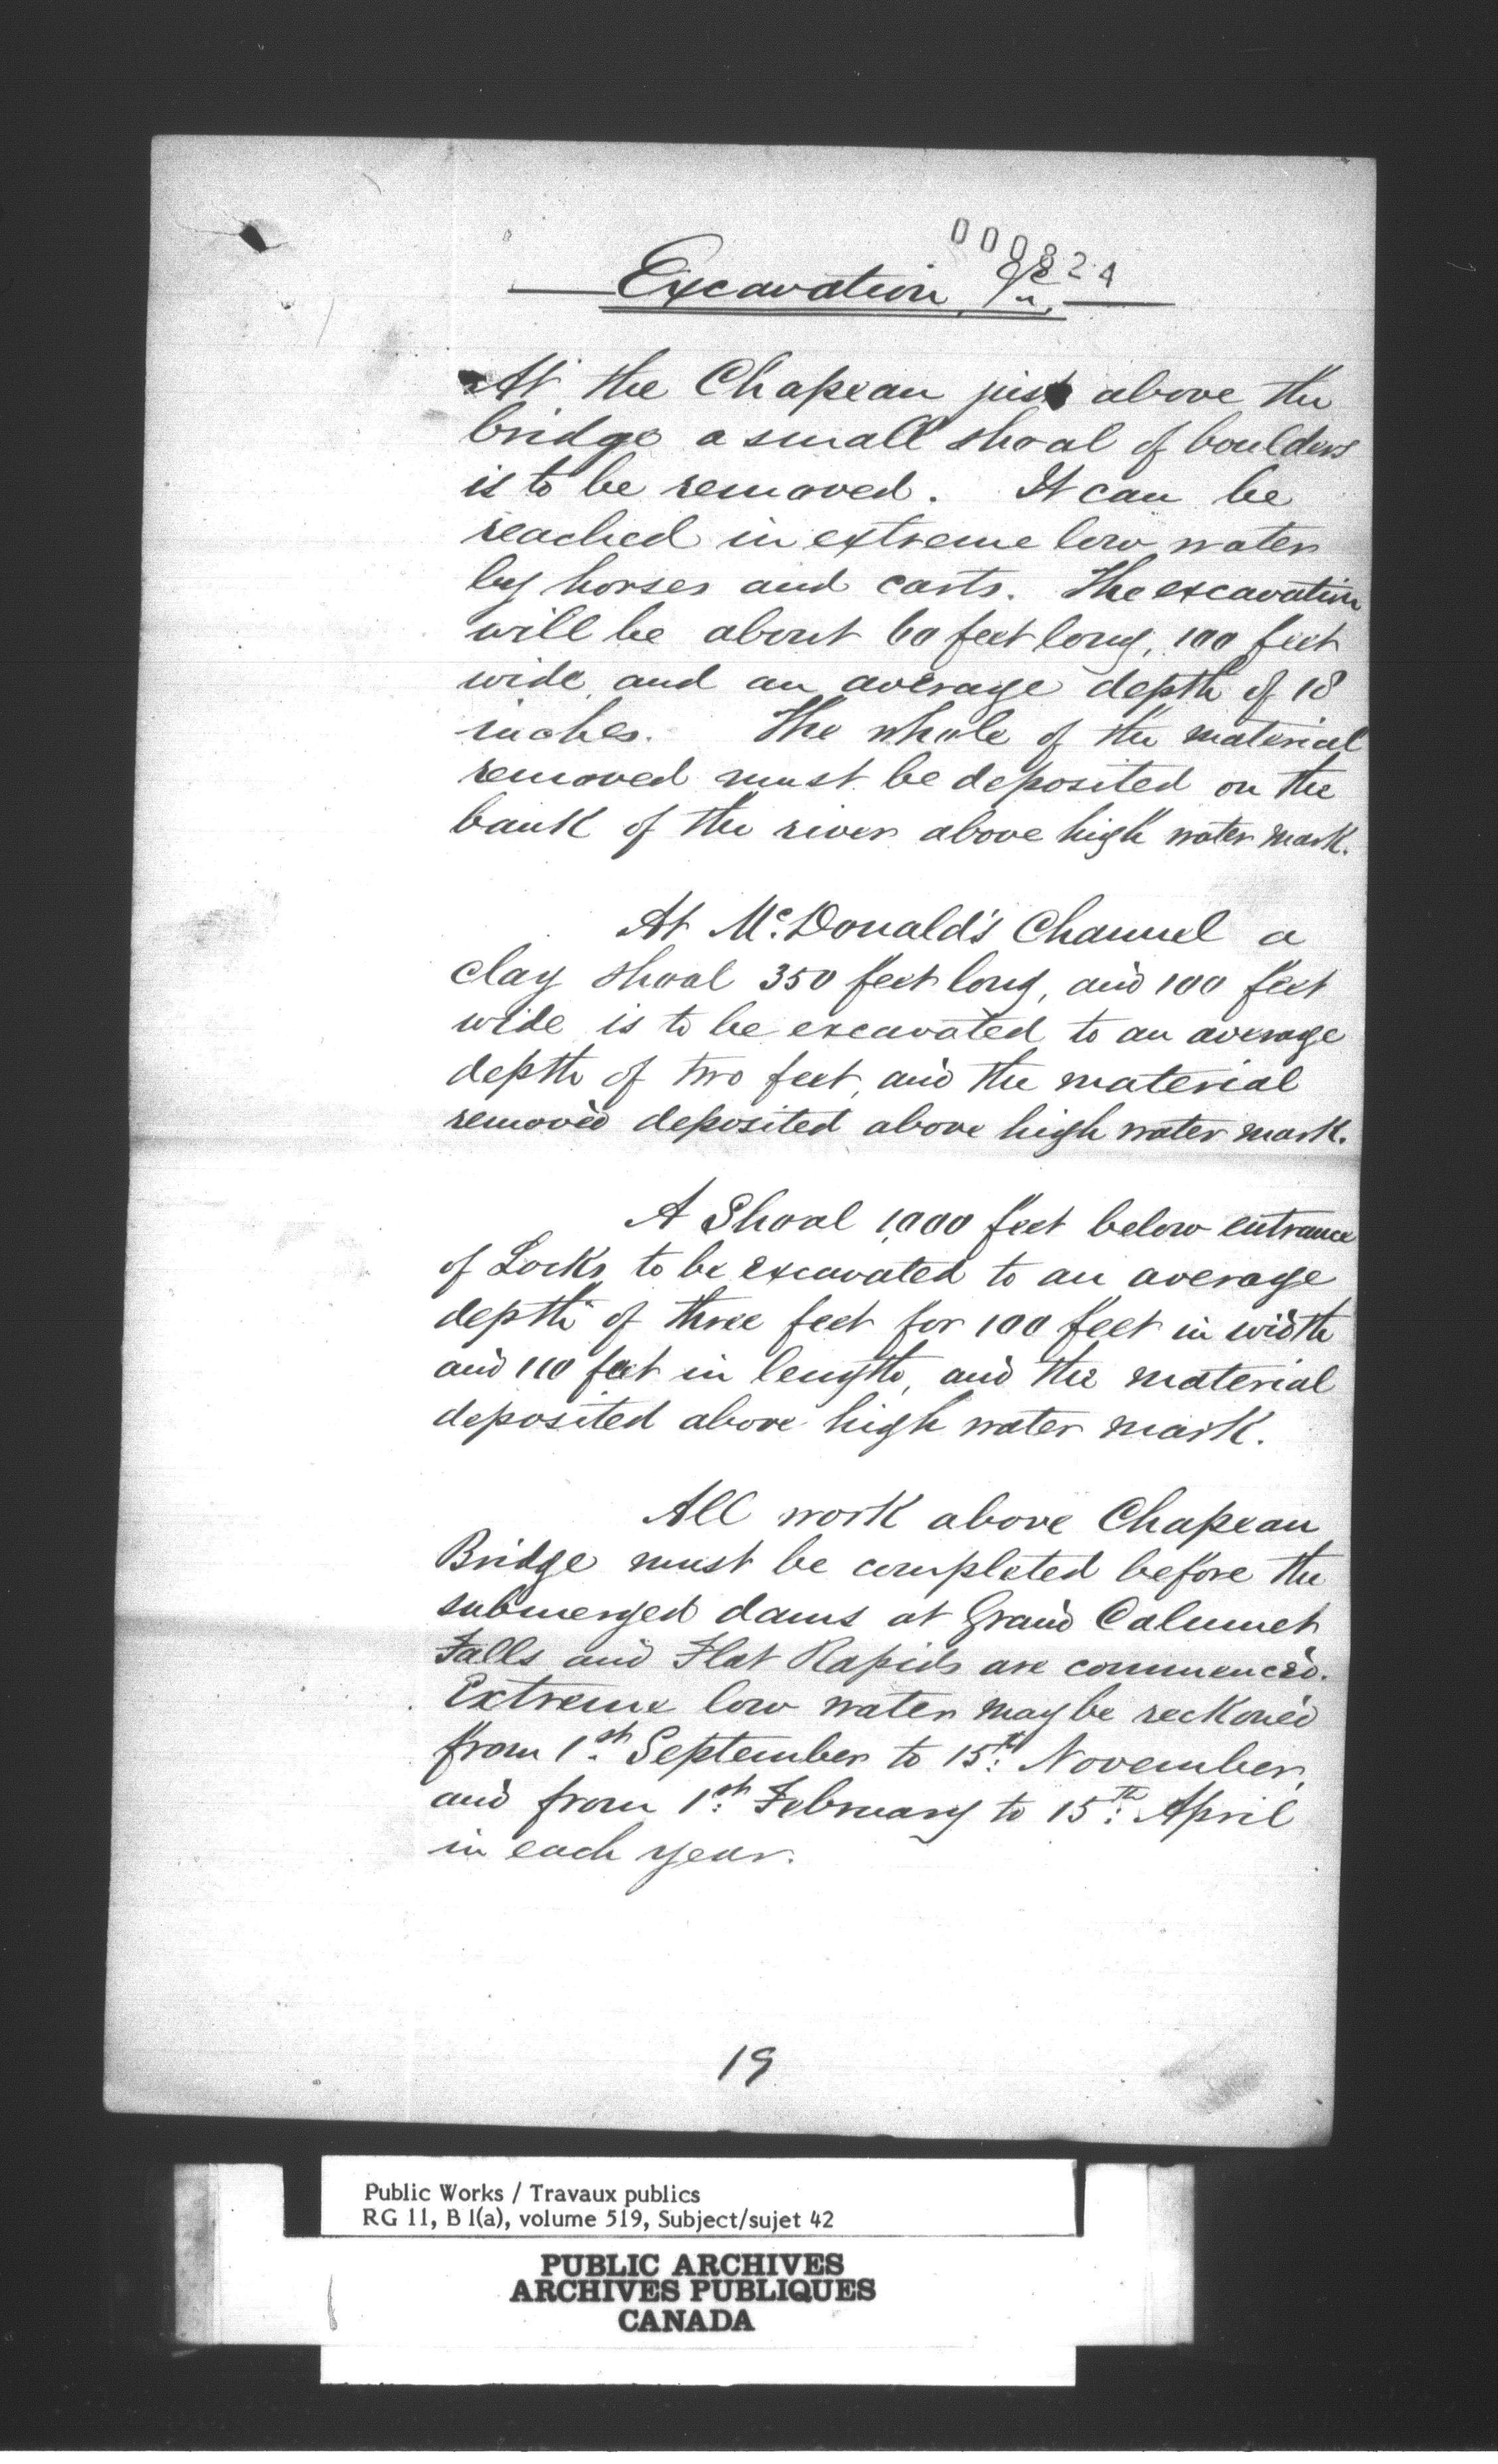 000824
Excavation, &c.
At the Chapeau just above the
bridge a small shoal of boulders
is to be removed. It can be
reached in extreme low water
by horses and carts. The excavation
will be about 60 feet long, 100 feet
wide, and an average depth of 18
inches. The whole of the material
removed must be deposited on the
bank of the river above high water mark.
At Mc.Donald's Channel a
clay shoal 350 feet long, and 100 feet
wide is to be excavated to an average
depth of two feet, and the material
removed deposited above high water mark.
A Shoal 1,000 feet below entrance
of Locks to be excavated to an average
depth of three feet for 100 feet in width
and 110 feet in length, and the material
deposited above high water mark.
All work above Chapeau
Bridge must be completed before the
submerged dams at Grand Calumet
Falls and Flat Rapids are commenced.
Extreme low water may be reckoned
from 1st. September to 15th. November,
and from 1st. February to 15th. April
in each year.
19
Public Works / Travaux publics
RG 11, B 1(a), volume 519, Subject/sujet 42
PUBLIC ARCHIVES
ARCHIVES PUBLIQUES
CANADA